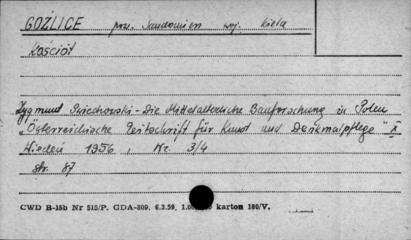 GOŹLICE pow. Sandomierz woj. Kielce
Kościół
Zygmunt Świechowski - Die Mittelalterliche Bauforschung in Polen
„Österreichische Zeitschrift für Kunst und Denkmalpflege" X
Wiedeń 1956, Nr. 3/4
str. 87
CWD B-15b Nr 515/P. GDA-809. 6.2.59. karton 180/V.